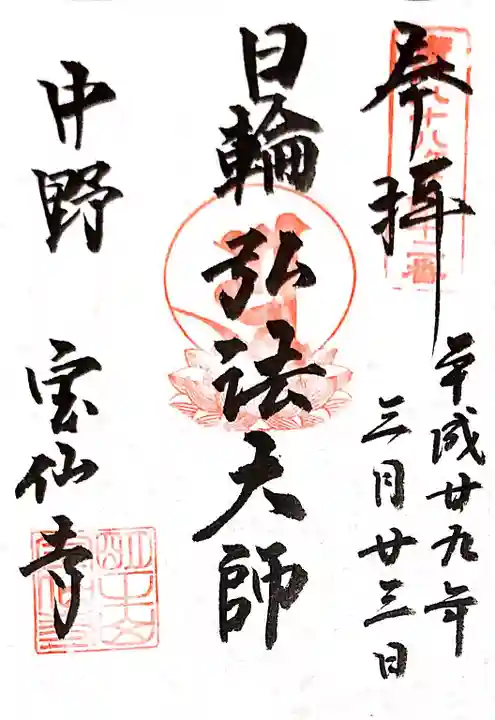 奉拝
平成廿九年
三月廿三日
日輪弘法大師
中野 宝仙寺